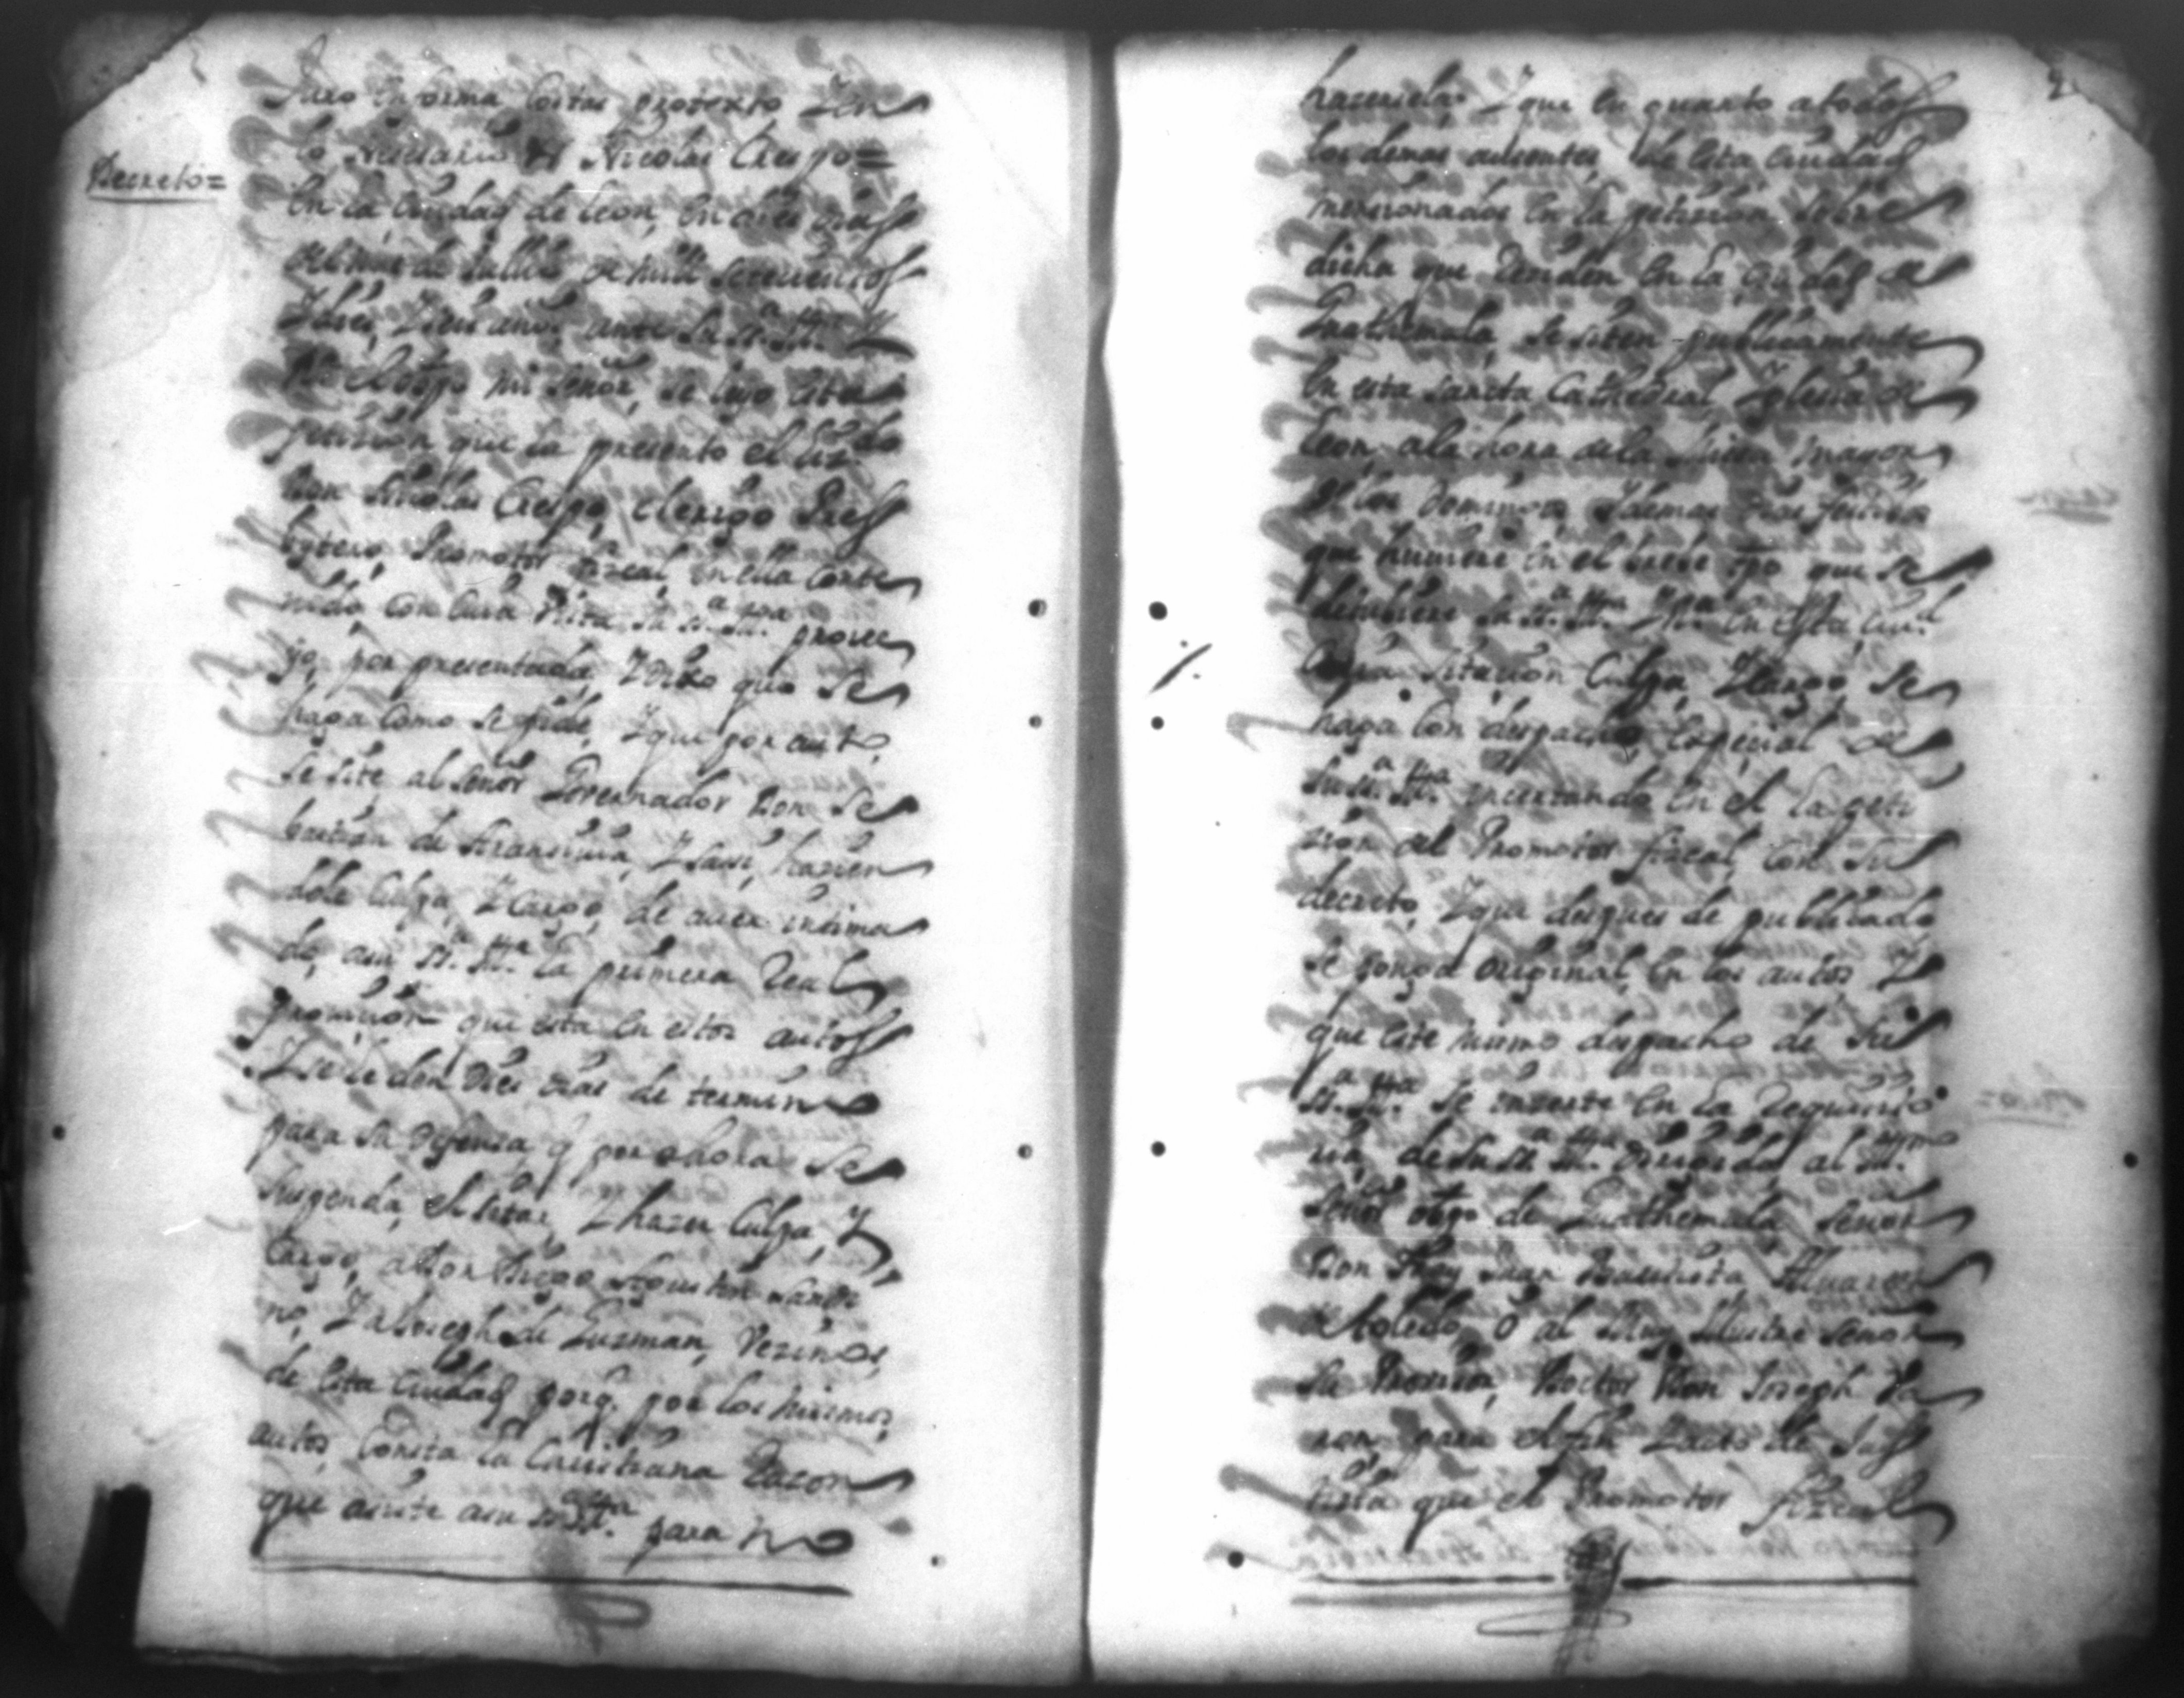 Juro en forma Costas protesto Y en
lo nesesario &a Nicolas Crespo=
Decreto=
En la Ciudad de Leon, en dies dias
del mes de Jullio de mill setecientos
Y dies, Y seis años, ante Su Sa. Illma. Y
el obispo mi señor, se leyo esta
petision que la presento el Lizdo
Don Nicolas Crespo, clerigo Pres
bytero, Promotor fizcal en ella Conte
nido, Con Cuia Vista Su Sa. Illma. provee
yo, por presentada, Y dixo que se
haga Como se pide, Y que por auto,
se site al señor Governador Don Se
bastian de Aransivia, Y Sasi, hazien
dole Culpa, Y Cargo, de aver intima
do, a su Sa. Illma. la primera Real
provision que esta en estos autos
Y se le den dies dias de termino
para su defensa, q por ahora se
suspenda, el sitar, Y hazer Culpa, Y
Cargo, a Don Diego
no, Y a Joseph de Guzman, Vezinos,
de esta Ciudad porq. por los mismos,
autos, Consta la Cristiana Razon
que asiste a su Sa. Illma. para no
hazerselo. Y que en quanto a todos
los demas ausentes, de esta Ciudad
mensionados en la petision sobre
dicha que residen en la Ciudad de
Guathemala, se siten publicamente
en esta Sancta Cathedral Yglesia de
Leon, a la hora de la Missa mayor,
de los Domingos, Y demas dias festivos
que huviere en el breve tpo que se
detubiere Su Sa. Illma. en esta Ciud.
Cuya sitasion Culpa, Y Cargo, se
haga Con despacho, Espesial de
Su Sa. Illma. incertando en el la peti
sion del Promotor fizcal, Con su
decreto, Y que despues de publicado
se ponga original, en los autos Y
que este mismo despacho de Su
Sa. Illma. se inserte en la Requisito
ria, de Su Sa. Illma. dirigida, al Illmo.
señor obpo de Guathemala, señor
Don Fray Juan Bauptista Alvarez
de toledo, o al Muy Illustre señor
Su Provisor, Doctor Don Joseph Va
ron para el fin Y acto de Jus
tisia que el Promotor fizcal